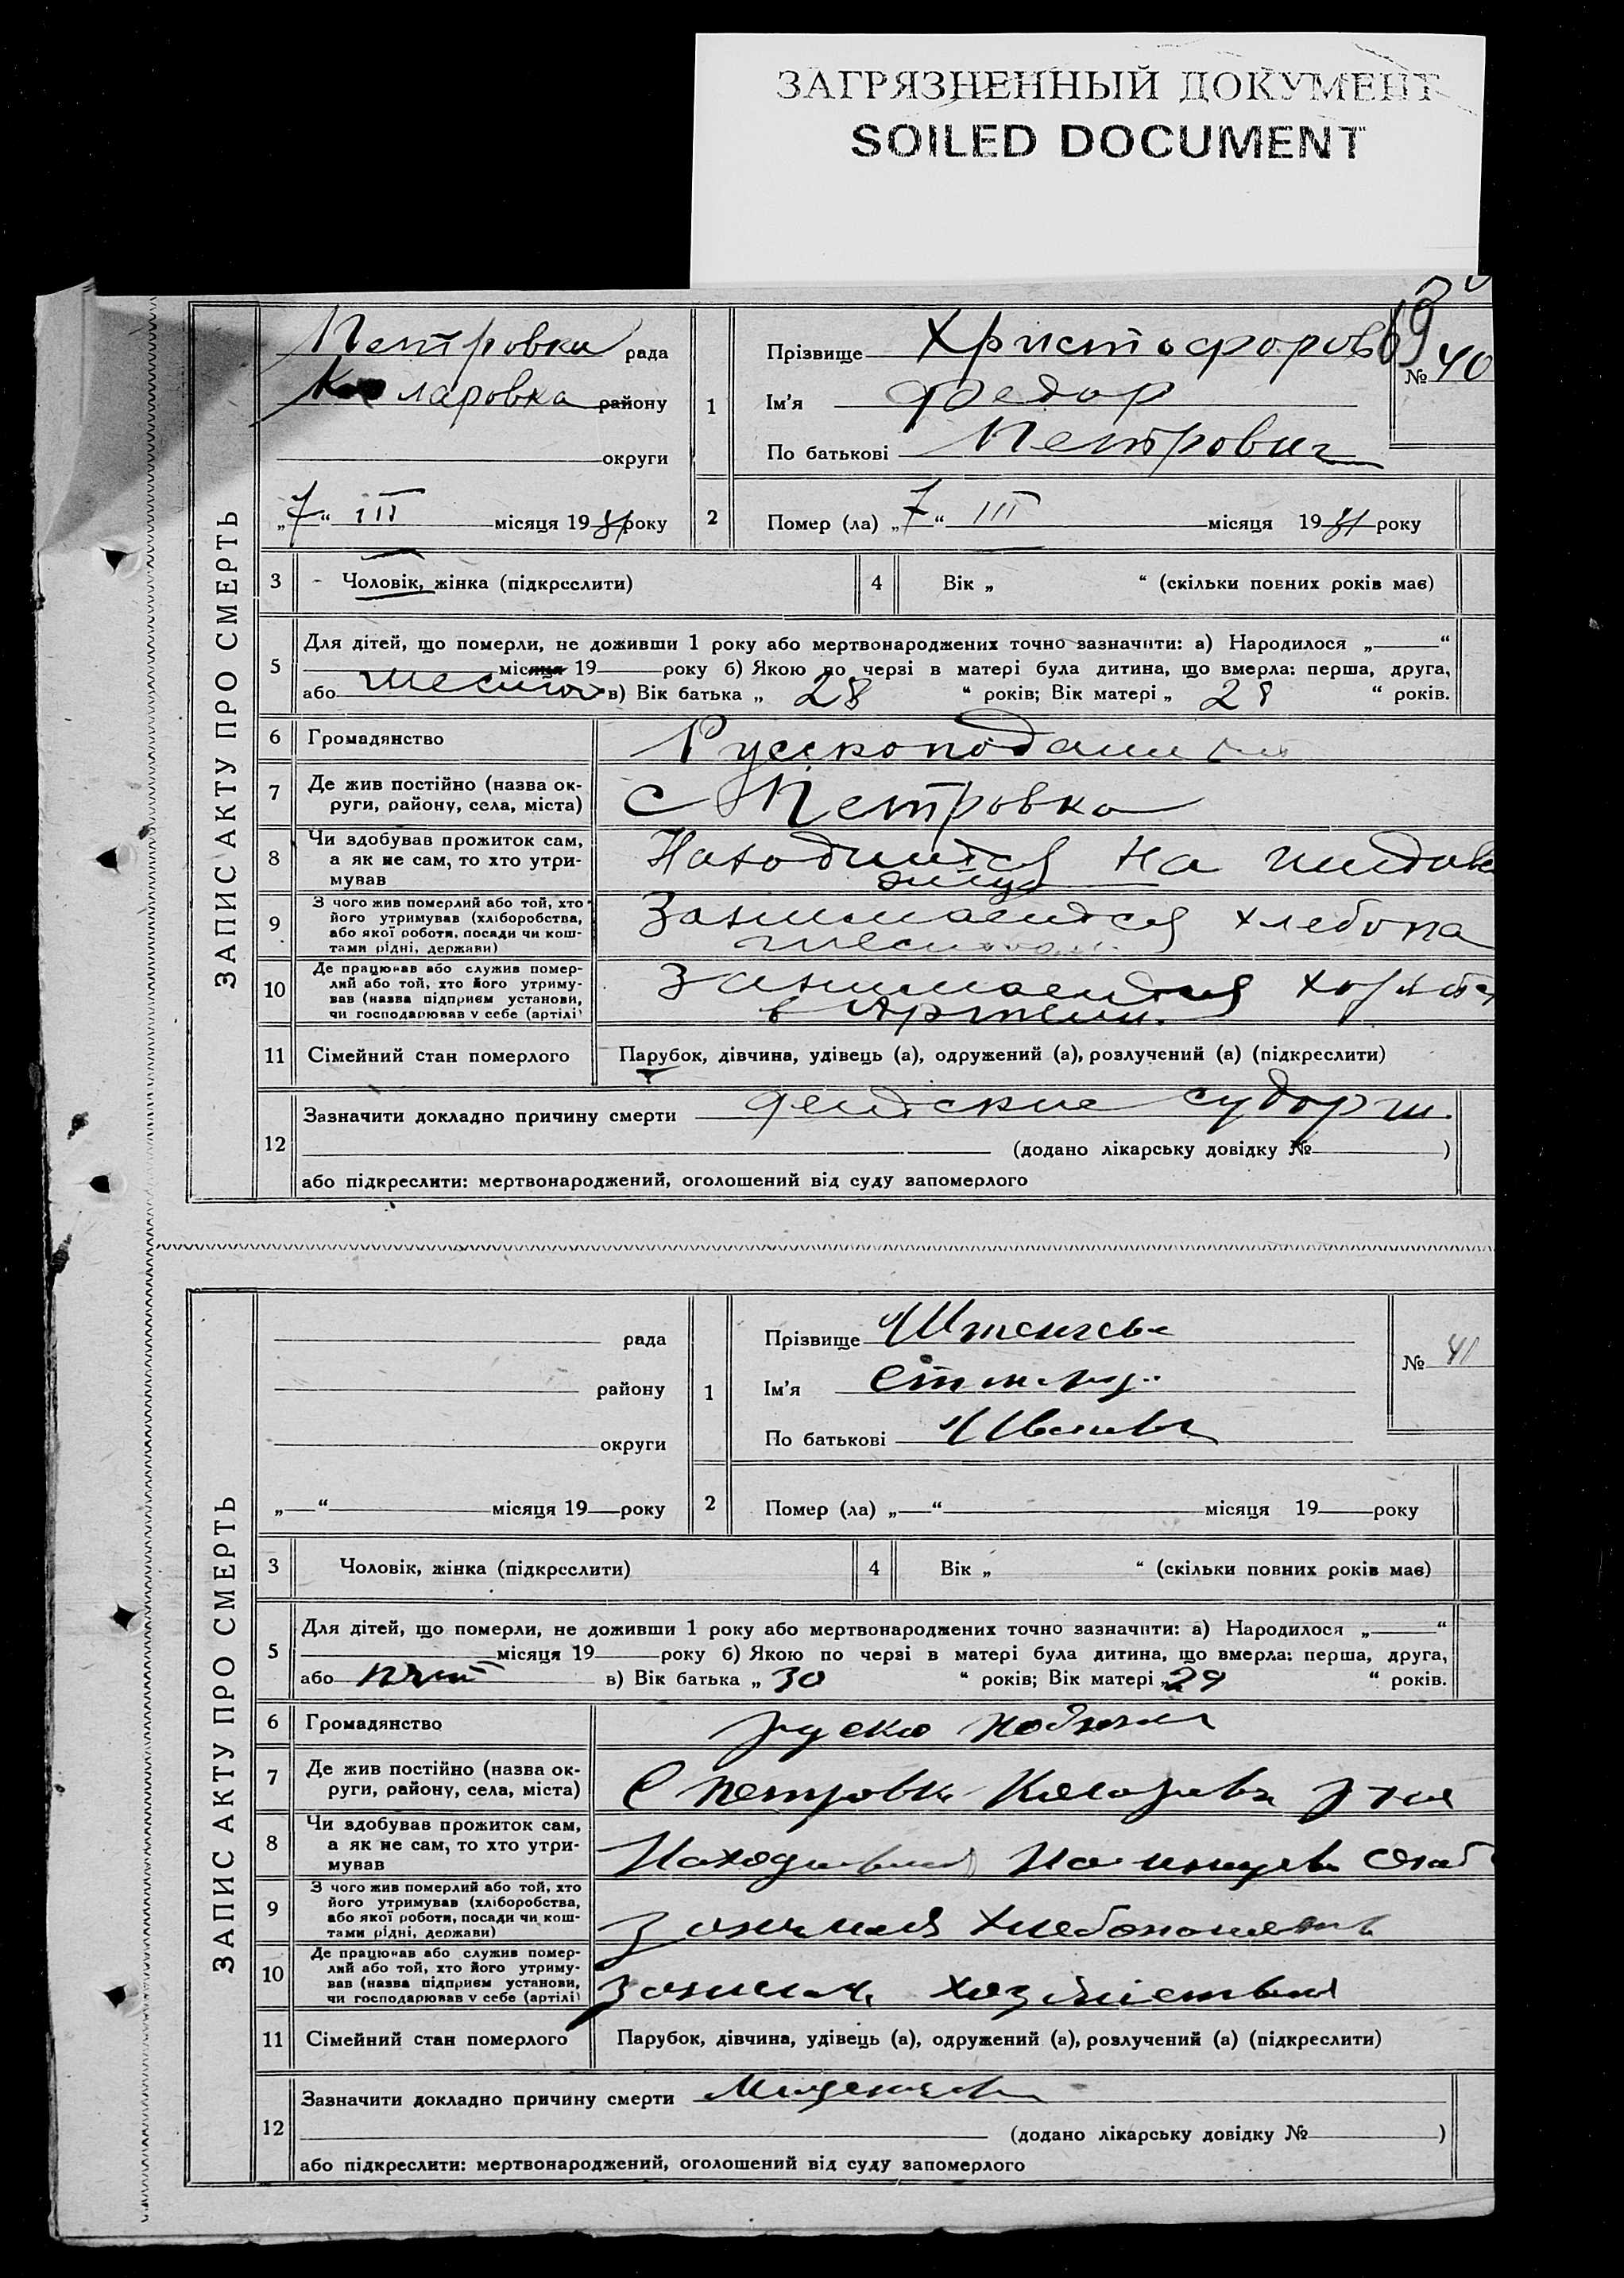 ЗАГРЯЗНЕННЫЙ ДОКУМЕНТ
SOILED DOCUMENT
69
ЗАПИС АКТУ ПРО СМЕРТЬ
Петровка рада
Коларовка району
округи
„7“ III місяця 19 року
1
Прізвище Христофоров
Ім’я Федор
По батькові Петрович
№ 40
2
Помер (ла) „7“ III місяця 19 року
3 Чоловік, жінка (підкреслити)
4 Вік „ “ (скільки повних років має)
5
Для дітей, що померли, не доживши 1 року або мертвонароджених точно зазначити: а) Народилося „ “
місяця 19 року б) Якою по черзі в матері була дитина, що вмерла: перша, друга,
або шестой в) Вік батька „ 28 “ років; Вік матері „ 28 “ років.
6 Громадянство
7 Де жив постійно (назва ок-
руги, району, села, міста) С Петровка
8 Чи здобував прожиток сам,
а як не сам, то хто утри-
мував
Находится на иждив
9 З чого жив померлий або той, хто
його утримував (хліборобства,
або якої роботи, посади чи кош-
тами рідні, держави)
Занимается хлебопа
10 Де працював або служив помер-
лий або той, хто його утриму-
вав (назва підприєм установи,
чи господарював у себе (артілі)
Занимается
в Артели.
11 Сімейний стан померлого Парубок, дівчина, удівець (а), одружений (а), розлучений (а) (підкреслити)
12
Зазначити докладно причину смерти детские судорги.
(додано лікарську довідку № )
або підкреслити: мертвонароджений, оголошений від суду запомерлого
ЗАПИС АКТУ ПРО СМЕРТЬ
рада
району
округи
„ “ місяця 19 року
1
Прізвище
Ім’я
По батькові
№ 41
2
Помер (ла) „ “ місяця 19 року
3 Чоловік, жінка (підкреслити)
4 Вік „ “ (скільки повних років має)
5
Для дітей, що померли, не доживши 1 року або мертвонароджених точно зазначити: а) Народилося „ “
місяця 19 року б) Якою по черзі в матері була дитина, що вмерла: перша, друга,
або в) Вік батька „ 30 “ років; Вік матері „ 29 “ років.
6 Громадянство руско
7 Де жив постійно (назва ок-
руги, району, села, міста) С Петровка
8 Чи здобував прожиток сам,
а як не сам, то хто утри-
мував
9 З чого жив померлий або той, хто
його утримував (хліборобства,
або якої роботи, посади чи кош-
тами рідні, держави)
10 Де працював або служив помер-
лий або той, хто його утриму-
вав (назва підприєм установи,
чи господарював у себе (артілі)
11 Сімейний стан померлого Парубок, дівчина, удівець (а), одружений (а), розлучений (а) (підкреслити)
12
Зазначити докладно причину смерти
(додано лікарську довідку № )
або підкреслити: мертвонароджений, оголошений від суду запомерлого